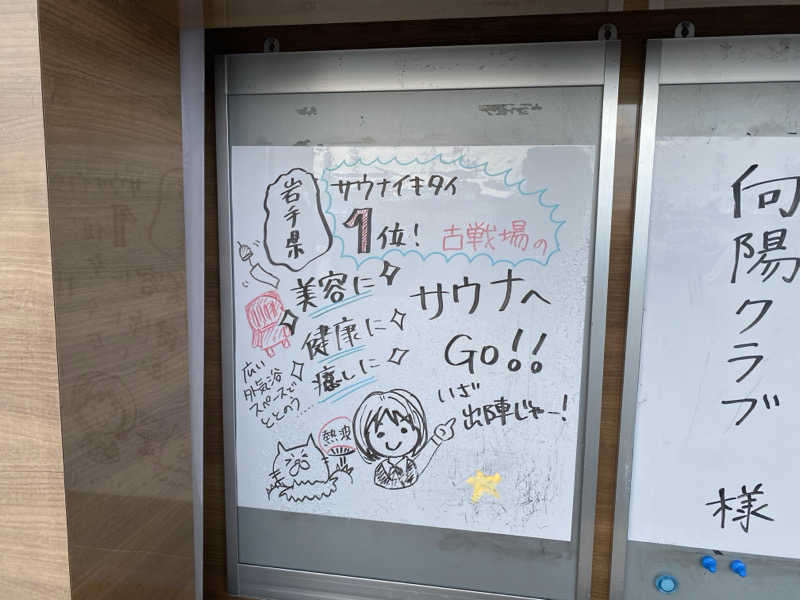 岩手県
サウナイキタイ
1位!
古戦場の
サウナへ
GO!!
美容に
健康に
癒しに
広い
外気浴
スペースで
ととのう……
熱波
いざ
出陣じゃー!
向陽クラブ
様